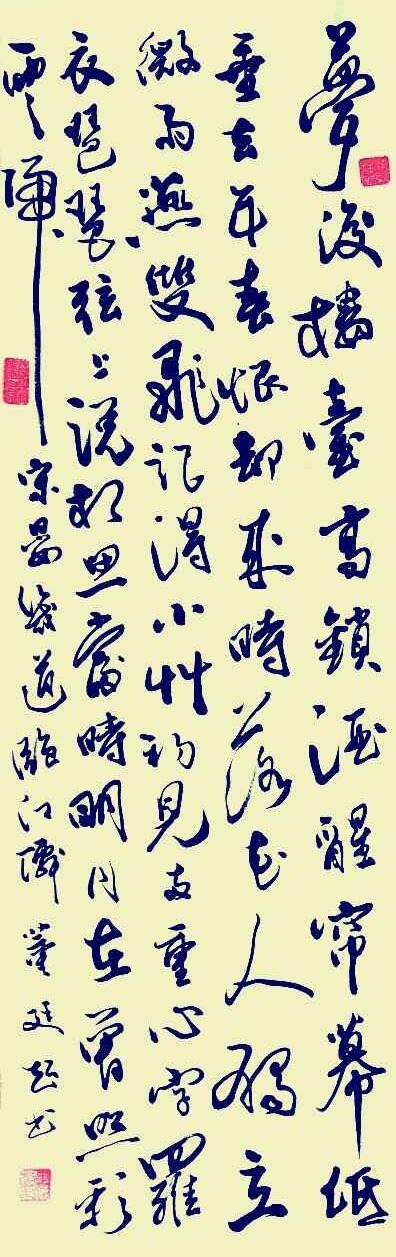 夢後樓臺高鎖酒醒帘幕低
垂去年春恨却來時落花人獨立
微雨燕雙飛記得小初見兩重心字羅
衣琵琶弦上說相思當時明月在曾照彩
雲歸 宋晏幾道臨江僊 董廷书